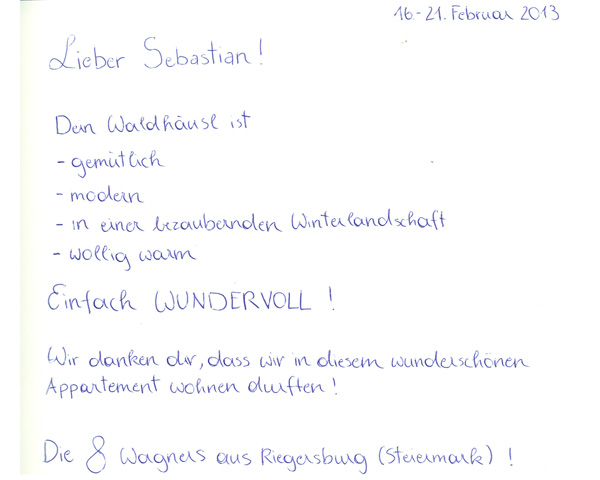 16-21. Februar 2013
Lieber Sebastian!
Dein Waldhäusl ist
- gemütlich
- modern
- in einer bezaubernden Winterlandschaft
- wollig warm
Einfach WUNDERVOLL !
Wir danken dir, dass wir in diesem wunderschönen
Appartement wohnen durften!
Die 8 Wagners aus Riegersburg (Steiermark) !